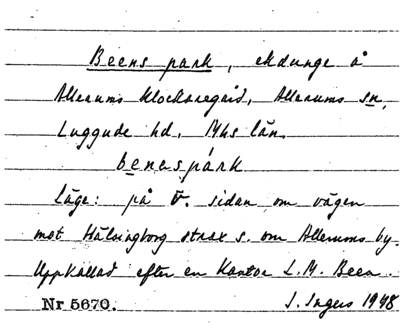 Beens park, ekdunge å
Allerums klockaregård, Allerums sn,
Luggude hd, Mhs län.
benas párk
Läge: på V. sidan om vägen
mot Hälsingborg strax s. om Allerums by.
Uppkallad efter en Kantor L. M. Been.
Nr 5670. I. Ingers 1948